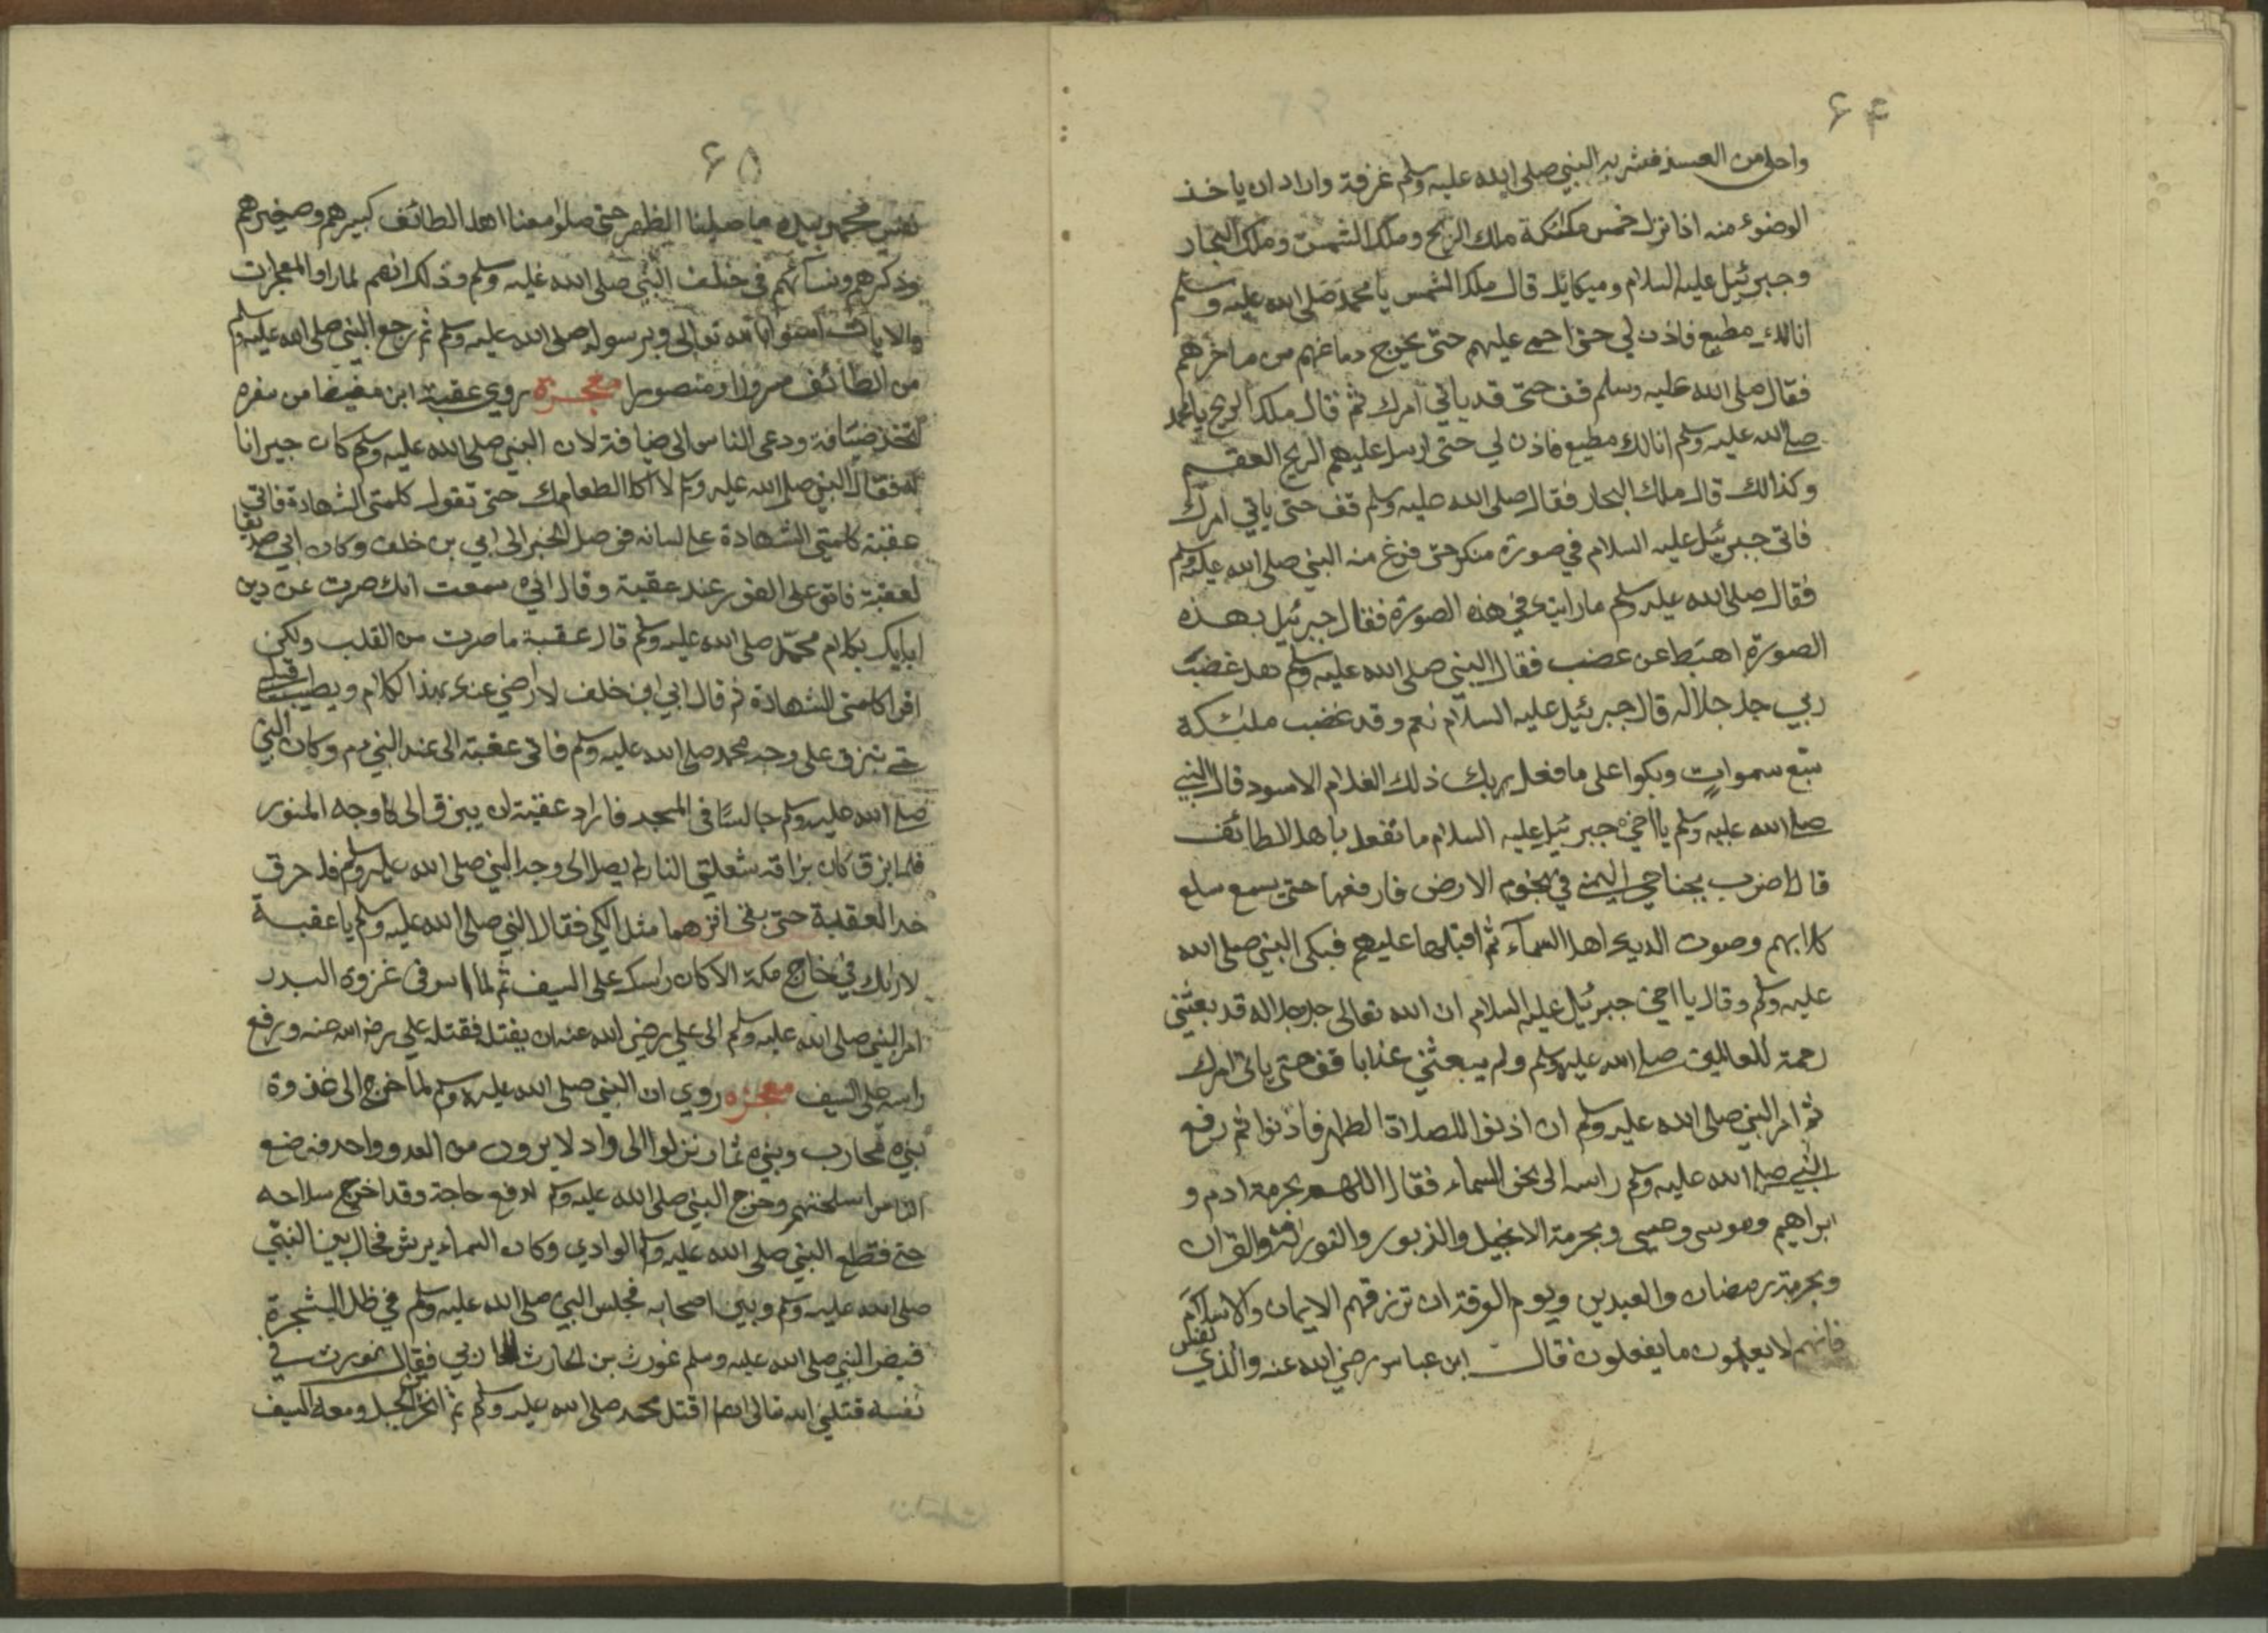 ۶۴
واحد من العسز فشربه النبي صلى الله عليه وسلم غرفة واراد ان ياخذ
الوضوء منه اذا نزل خمس ملئكة ملك الريح وملك الشمس وملك البحار
وجبرئيل عليه السلام وميكايل قال ملك الشمس يا محمد صلى الله عليه وسلم
انا لك مطيع فاذن لي حتى احمى عليهم حتى يخرج دماغهم من مناخرهم
فقال صلى الله عليه وسلم قف حتى قد ياتي امرك ثم قال ملك الريح يا محمد
صلى الله عليه وسلم انا لك مطيع فاذن لي حتى ارسل عليهم الريح العقيم
وكذالك قال ملك البحار فقال صلى الله عليه وسلم قف حتى ياتي امرك
فاتى جبرئيل عليه السلام في صورة منكر حتى فزع منه النبي صلى الله عليه وسلم
فقال صلى الله عليه وسلم ما رايتك في هذه الصورة فقال جبرئيل بهذه
الصورة اهبط عن غضب فقال النبي صلى الله عليه وسلم هل غضب
ربي جل جلاله قال جبرئيل عليه السلام نعم وقد غضب ملئكة
سبع سموات وبكوا على ما فعل بربك ذلك الغلام الاسود قال النبي
صلى الله عليه وسلم يا اخي جبرئيل عليه السلام ما تفعل باهل الطائف
قال اضرب بجناحي اليمنى في تخوم الارض فارفعها حتى يسمع سلع
كلابهم وصوت الديك اهل السمآء ثم اقبلها عليهم فبكى النبي صلى الله
عليه وسلم وقال يا اخي جبرئيل عليه السلام ان الله تعالى جل جلاله قد بعثني
رحمة للعالمين صلى الله عليه وسلم ولم يبعثني عذابا قف حتى ياتي امرك
ثم امر النبي صلى الله عليه وسلم ان اذنوا للصلاة الظهر فاذنوا ثم رفع
النبي صلى الله عليه وسلم راسه الى نحو السماء فقال اللهم بحرمة ادم و
ابراهيم وموسى وعيسى وبحرمة الانجيل والزبور والتوراة والقران
وبحرمة رمضان والعيدين ويوم الوقفة ان ترزقهم الايمان والاسلام
فانهم لا يعلمون ما يفعلون قال ابن عباس رضي الله عنه والذي نفس
۶۵
نفس محمد بيده ما صلينا الظهر حتى صلوا معنا اهل الطائف كبيرهم وصغيرهم
وذكرهم ونسآئهم في خلف النبي صلى الله عليه وسلم وذلك انهم لما راوا المعجزات
والايات امنوا بالله تعالى وبرسوله صلى الله عليه وسلم ثم رجع النبي صلى الله عليه وسلم
من الطائف مسرورا ومنصورا معجزة روي عقبة ابن مغيضا من سفره
اتخذ ضيافة ودعى الناس الى ضيافة لان النبي صلى الله عليه وسلم كان جيرانا
له فقال النبي صلى الله عليه وسلم لا اكل الطعامك حتى تقول كلمتي الشهادة فاتى
عقبة كلمتي الشهادة على لسانه فوصل الخبر الى ابي بن خلف وكان ابي صديقا
لعقبة فاتى على الفور عند عقبة وقال اني سمعت انك صرت عن دين
ابايك بكلام محمد صلى الله عليه وسلم قال عقبة ما صرت من القلب ولكن
اقرا كلمتي الشهادة ثم قال ابي ابن خلف لا راضي عنك بهذا كلام ويطيب قلبي
حتى تبزق على وجه محمد صلى الله عليه وسلم فاتى عقبة الى عند النبي م وكان النبي
صلى الله عليه وسلم جالسا في المسجد فاراد عقبة ان يبزق الى وجه المنور
فلما بزق كان بزاقه شعلتي النار لم يصل الى وجه النبي صلى الله عليه وسلم فلا حرق
خد العقبة حتى بقى اثرهما مثل الكي فقال النبي صلى الله عليه وسلم يا عقبة
لا رايك في خارج مكة الا كان راسك على السيف ثم لما في غزوة البدر
امر النبي صلى الله عليه وسلم الى علي رضي الله عنه ان يقتل فقتله علي رضي الله عنه ورفع
راسه على السيف معجزه روي ان النبي صلى الله عليه وسلم لما خرج الى غزوة
بني محارب وبني نزلوا الى واد لا يرون من العدو واحد فوضع
الناس اسلحتهم وخرج النبي صلى الله عليه وسلم لدفع حاجة وقد اخرج سلاحه
حتى فقطع النبي صلى الله عليه وسلم الوادي وكان السماء يرش فحال بين النبي
صلى الله عليه وسلم وبين اصحابه فجلس النبي صلى الله عليه وسلم في ظل الشجرة
فبصر النبي صلى الله عليه وسلم غورث بن الحارث فقال غورث في
نفسه قتلني الله تعالى ان لم اقتل محمد صلى الله عليه وسلم ثم انحز الجبل ومعه السيف